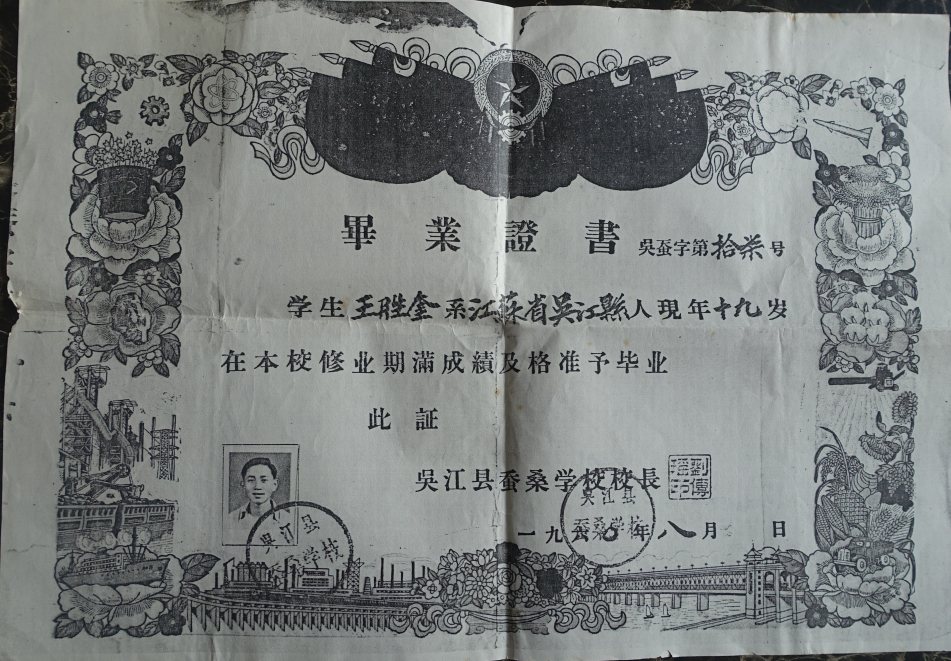 畢業證書 吳蚕字第拾柒号
学生王胜奎系江苏省吳江縣人現年十九岁
在本校修业期滿成績及格准予毕业
此証
吳江县蚕桑学校校長
一九六〇年八月 日
吳江县
蚕桑学校
吳江县
学校